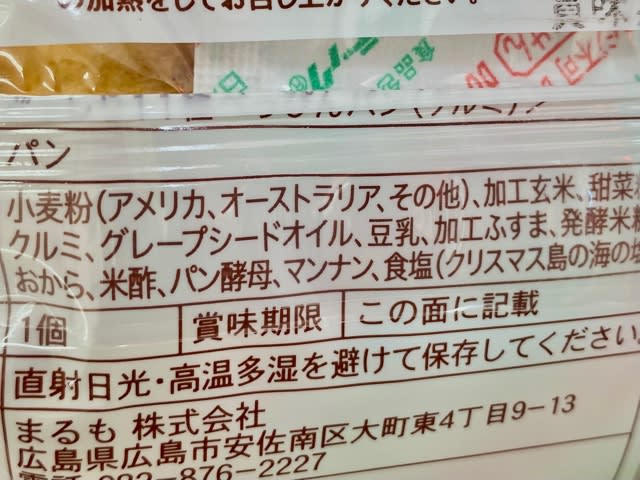 の加熱をしてお召し上がりください。
賞味
食品
不可
パン
小麦粉(アメリカ、オーストラリア、その他)、加工玄米、甜菜
クルミ、グレープシードオイル、豆乳、加工ふすま、発酵米糠
おから、米酢、パン酵母、マンナン、食塩(クリスマス島の海の塩
1個 賞味期限 この面に記載
直射日光・高温多湿を避けて保存してください。
まるも 株式会社
広島県広島市安佐南区大町東4丁目9-13
電話 082-876-2227